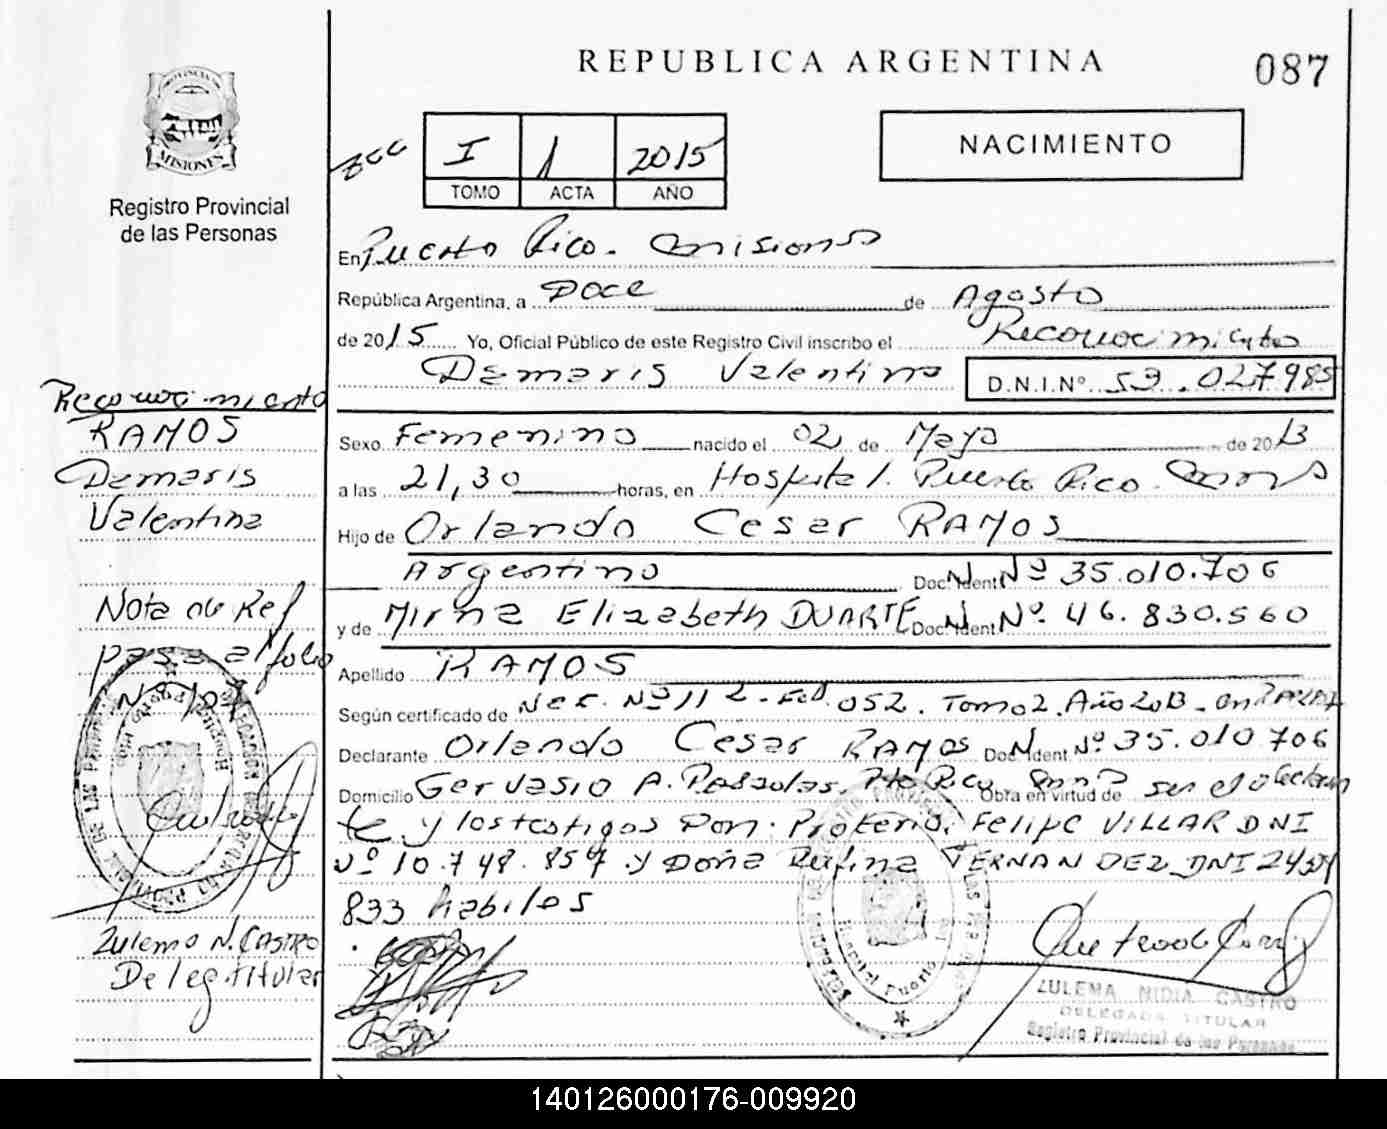 REPUBLICA ARGENTINA
087
PROVINCIA DE
MISIONES
Registro Provincial
de las Personas
I 1 2015
TOMO ACTA AÑO
NACIMIENTO
En Puerto Rico. Misiones
República Argentina, a Doce de Agosto
de 2015 Yo, Oficial Público de este Registro Civil inscribo el Reconocimiento
Demaris Valentina D.N.I.Nº 53.027985
Sexo Femenino nacido el 02 de Mayo de 2013
a las 21,30 horas, en Hospital. Puerto Rico. Misiones
Hijo de Orlando Cesar RAMOS
Argentino Doc. Ident. Nº 35.010.706
y de Mirna Elizabeth DUARTE Doc. Ident. Nº. 46.830.560
Apellido RAMOS
Según certificado de Nac. Nº 112 - Fol. 052. Tomo 2. Año 2013 - en
Declarante Orlando Cesar RAMOS Doc. Ident. Nº 35.010.706
Domicilio Gervasio A. Posadas. Pto Rico Obra en virtud de ser el declaran
te y los testigos Don. Proterio. Felipe VILLAR DNI
Nº 10.748.859 y Doña Rufina FERNANDEZ DNI
833 habiles
Reconocimiento
RAMOS
Demaris
Valentina
Nota de Ref
pasa al folio
Zulema N. CASTRO
Deleg. titular
ZULEMA NIDIA CASTRO
DELEGADA TITULAR
Registro Provincial de las Personas
140126000176-009920